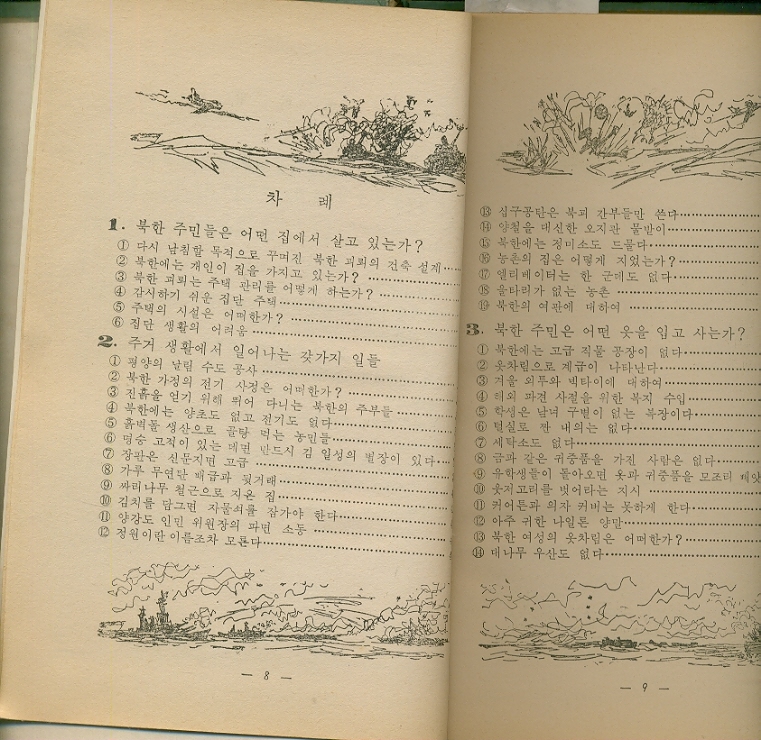 차 례
1. 북한 주민들은 어떤 집에서 살고 있는가?
① 다시 남침할 목적으로 꾸며진 북한 괴뢰의 건축 설계
② 북한에는 개인이 집을 가지고 있는가?
③ 북한 괴뢰는 주택 관리를 어떻게 하는가?
④ 감시하기 쉬운 집단 주택
⑤ 주택의 시설은 어떠한가?
⑥ 집단 생활의 어려움
2. 주거 생활에서 일어나는 갖가지 일들
① 평양의 날림 수도 공사
② 북한 가정의 전기 사정은 어떠한가?
③ 진흙을 얻기 위해 뛰어 다니는 북한의 주부들
④ 북한에는 양초도 없고 전기도 없다
⑤ 흙벽돌 생산으로 골탕 먹는 농민들
⑥ 명승 고적이 있는 데면 반드시 김 일성의 별장이 있다
⑦ 장판은 신문지면 고급
⑧ 가루 무연탄 배급과 뒷거래
⑨ 싸리나무 철근으로 지은 집
⑩ 김치를 담그면 자물쇠를 잠가야 한다
⑪ 양강도 인민 위원장의 파면 소동
⑫ 정원이란 이름조차 모른다
— 8 —
⑬ 십구공탄은 북괴 간부들만 쓴다
⑭ 양철을 대신한 오지관 물받이
⑮ 북한에는 정미소도 드물다
⑯ 농촌의 집은 어떻게 지었는가?
⑰ 엘리베이터는 한 군데도 없다
⑱ 울타리가 없는 농촌
⑲ 북한의 여관에 대하여
3. 북한 주민은 어떤 옷을 입고 사는가?
① 북한에는 고급 직물 공장이 없다
② 옷차림으로 계급이 나타난다
③ 겨울 외투와 넥타이에 대하여
④ 해외 파견 사절을 위한 복지 수입
⑤ 학생은 남녀 구별이 없는 복장이다
⑥ 털실로 짠 내의는 없다
⑦ 세탁소도 없다
⑧ 금과 같은 귀중품을 가진 사람은 없다
⑨ 유학생들이 몰아오면 옷과 귀중품을 모조리
⑩ 웃저고리를 벗어라는 지시
⑪ 커어튼과 의자 커버는 못하게 한다
⑫ 아주 귀한 나일론 양말
⑬ 북한 여성의 옷차림은 어떠한가?
⑭ 대나무 우산도 없다
— 9 —